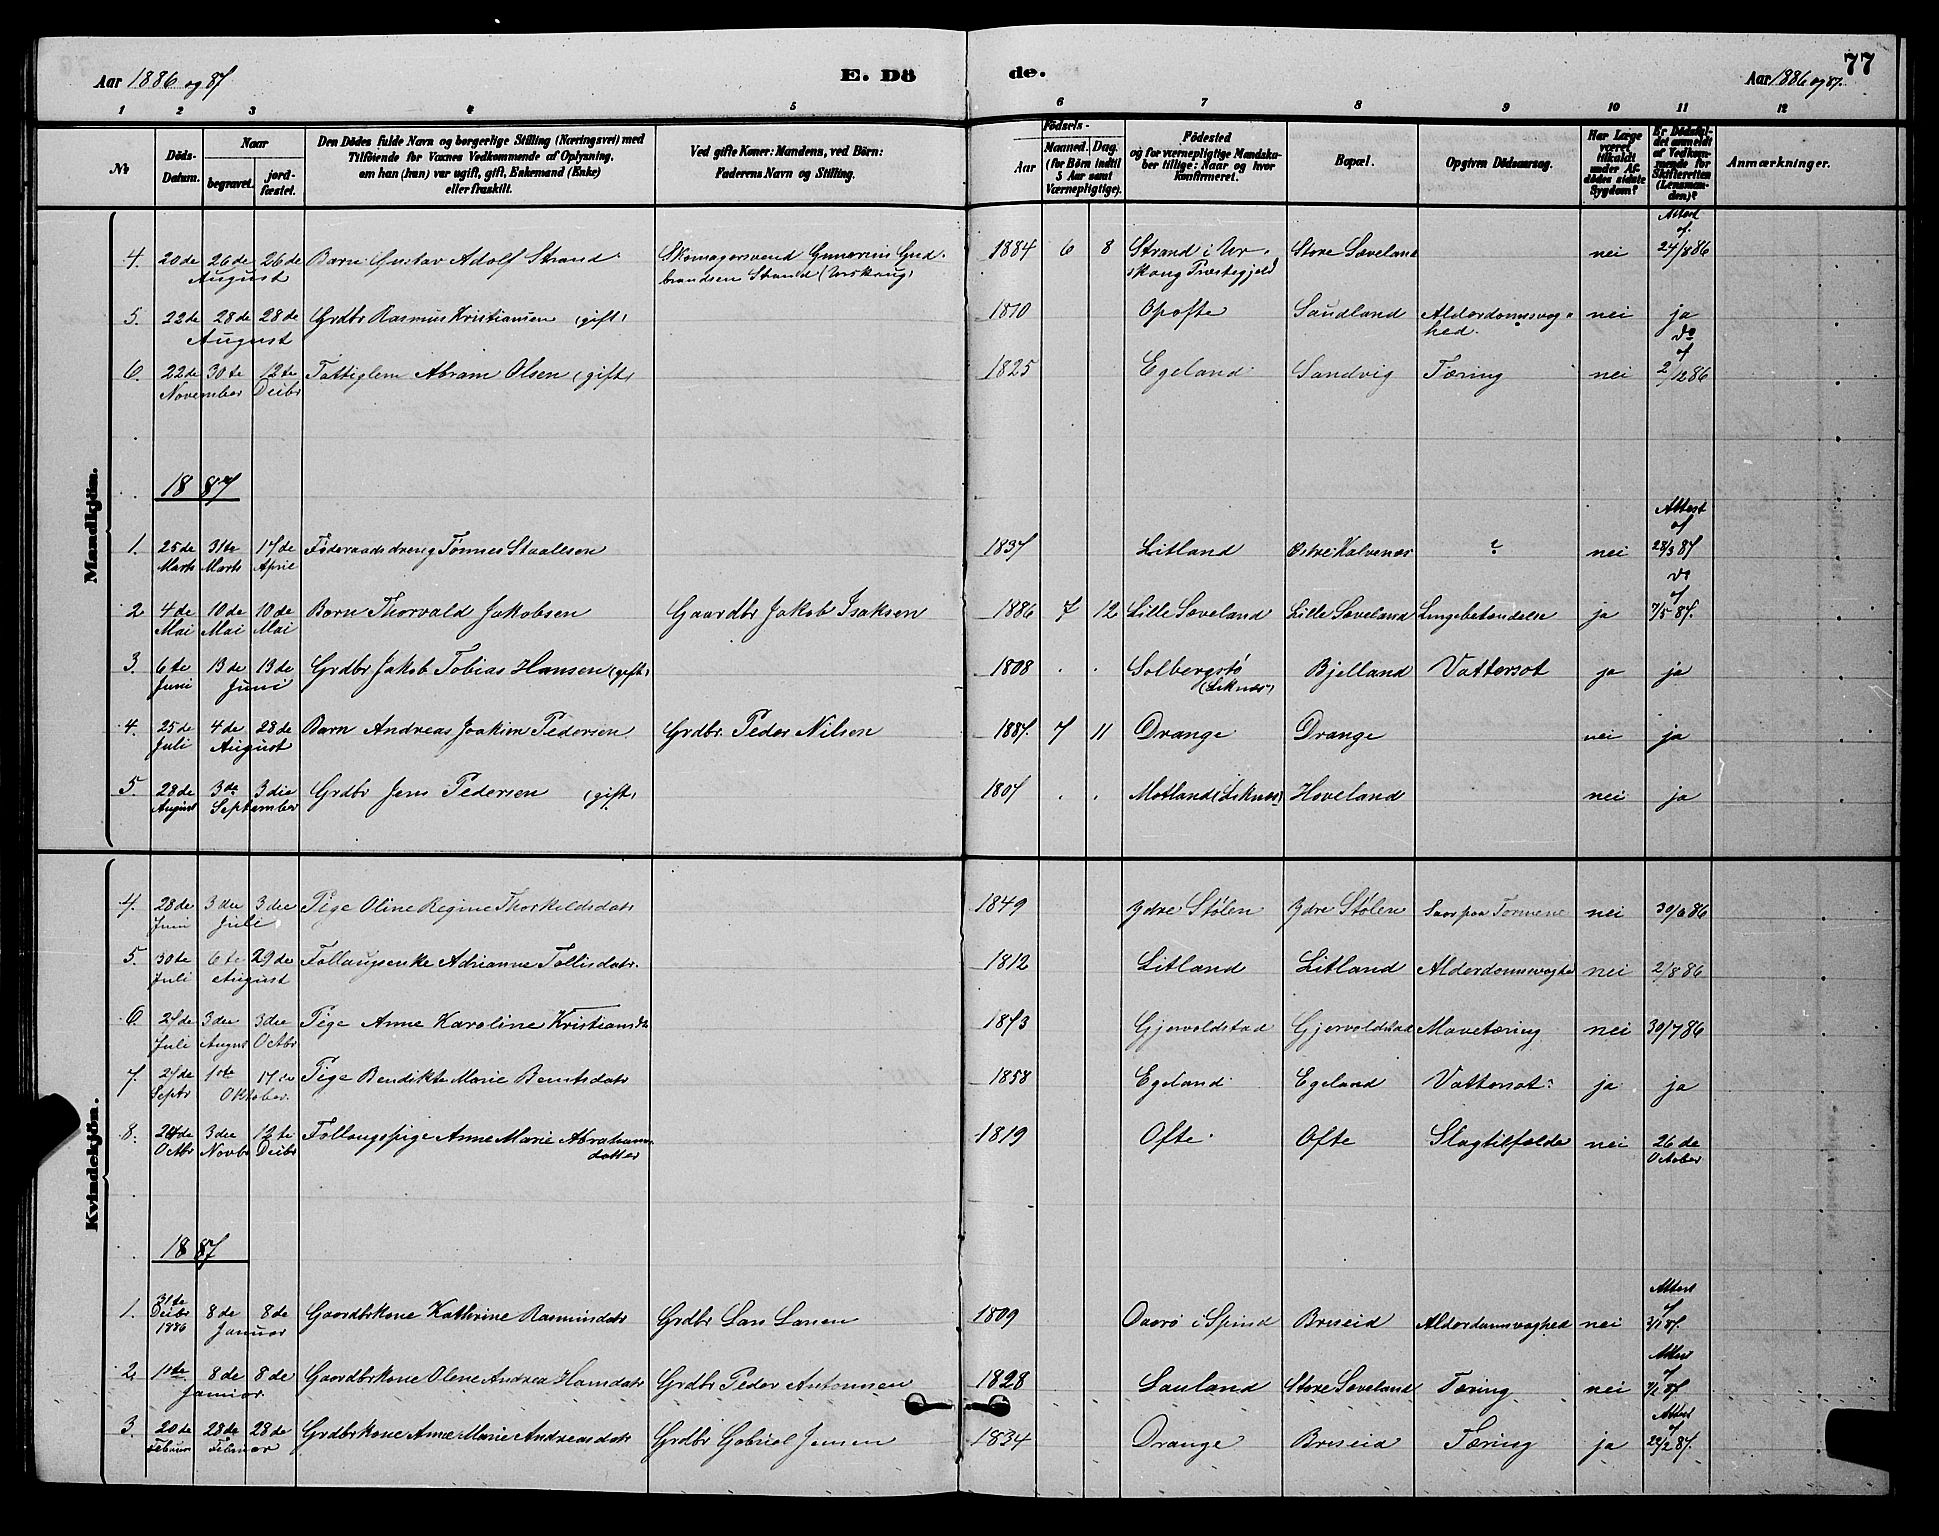 Aar 1886 og 87
E. Dö
de.
77
Aar 1886 og 87.
1 2 3 4 5 6 7 8 9 10 11 12
№
Döds-Datum.
Naar
begravet.
jord-fæstet.
Den Dödes fulde Navn og borgerlige Stilling (Næringsvei) med
Tilföiende for Voxnes Vedkommende af Oplysning,
om han (hun) var ugift, gift, Enkemand (Enke)
eller fraskilt.
Ved gifte Koner: Mandens, ved Börn:
Faderens Navn og Stilling.
Födsels-
Aar
Maaned. Dag.
(for Börn indtil
5 Aar samt
Værnepligtige).
Födested
og for værnepligtige Mandska-
ber tillige: Naar og hvor
konfirmeret.
Bopæl.
Opgiven Dödsaarsag.
Har Læge
været
tilkaldt
under Af-
dödes sidste
Sygdom?
Er Dödsfal-
det anmeldt
af Vedkom-
mende for
Skifteretten
(Lensman-
den)?
Anmærkninger.
Mandkjön.
4. 20de 26de 26de August Barn Gustav Adolf Strand Skomagersvend Gunerius Gud-brandsen Strand (Urskoug) 1884 6 8 Strand i Ur-skoug Præstegjeld Store Sæveland nei Attest af 24/8 86
5. 22de 28de 28de August Grdbr Rasmus Kristiansen (gift) 1810 Opofte Saudland Alderdomssvag-hed. nei ja
6. 22de November 30te 12te Decbr Fattiglem Abram Olsen (gift) 1825 Egeland Sandvig Tæring nei do af 2/12 86
1887
1. 25de Marts 31te Marts 17de April Føderaadsdreng Tønnes Staalesen 1837 Litland Østre Kalvenes ? nei Attest af 28/3 87
2 4de Mai 10de Mai 10de Mai Barn Thorvald Jakobsen Gaardbr Jakob Isaksen 1886 7 12 Lille Sæveland Lille Sæveland Lungebetændelse ja do af 7/5 87.
3. 6te Juni 13de 13de Juni Grdbr Jakob Tobias Hansen (gift) 1808 Solbergstø (Liknes) Bjelland Vattersot ja ja
4. 25de Juli 4de 28de August Barn Andreas Joakim Pedersen Grdbr. Peder Nilsen 1887. 7 11 Drange Drange nei ja
5. 28de August 3de 3die September Grdbr Jens Pedersen (gift) 1807 Motland (Liknes) Hoveland nei ja
Kvindekjön.
4. 28de Juni 3die 3die Juli Pige Oline Regine Thorkeldsdatr 1849 Ydre Stølen Ydre Stølen Saar paa Tarmene nei 30/6 86
5. 30te Juli 6te 29de August Follaugsenke Adrianne Tollisdatr. 1812 Litland Litland Alderdomssvaghe nei 2/8 86
6. 27de Juli 3die August 3die Octbr Pige Anne Karoline Kristiansdtr 1873 Gjervoldstad Gjervoldstad Mavetæring nei 30/7 86
7. 27de Septr 1ste 17de Oktober. Pige Bendikte Marie Berntsdatr 1858 Egeland Egeland Vattersot ja ja
8. 24de Octbr 3die Novbr 12te Decbr Follaugspige Anne Marie Abrahams-datter 1819 Ofte Ofte Slagtilfælde nei 26de October
1887
1. 31te Decbr 1886 8de 8de Januar Gaardbrkone Kathrine Rasmusdatr Grdbr Lars Larsen 1809 Svarø i Spind Briseid Alderdomssvaghed nei Attest af 3/1 87.
2. 1ste 8de 8de Januar. Gaardbrkone Olene Andrea Hansdatr Grdbr Peder Antonsen 1828 Sauland Store Sæveland Tæring nei Attest af 7/1 87
3. 20de Februar 28de 28de Februar Grdbrkone Anne Marie Andreasdatr Grdbr Gabriel Jensen 1834 Drange Briseid Tæring ja Attest af 22/2 87.